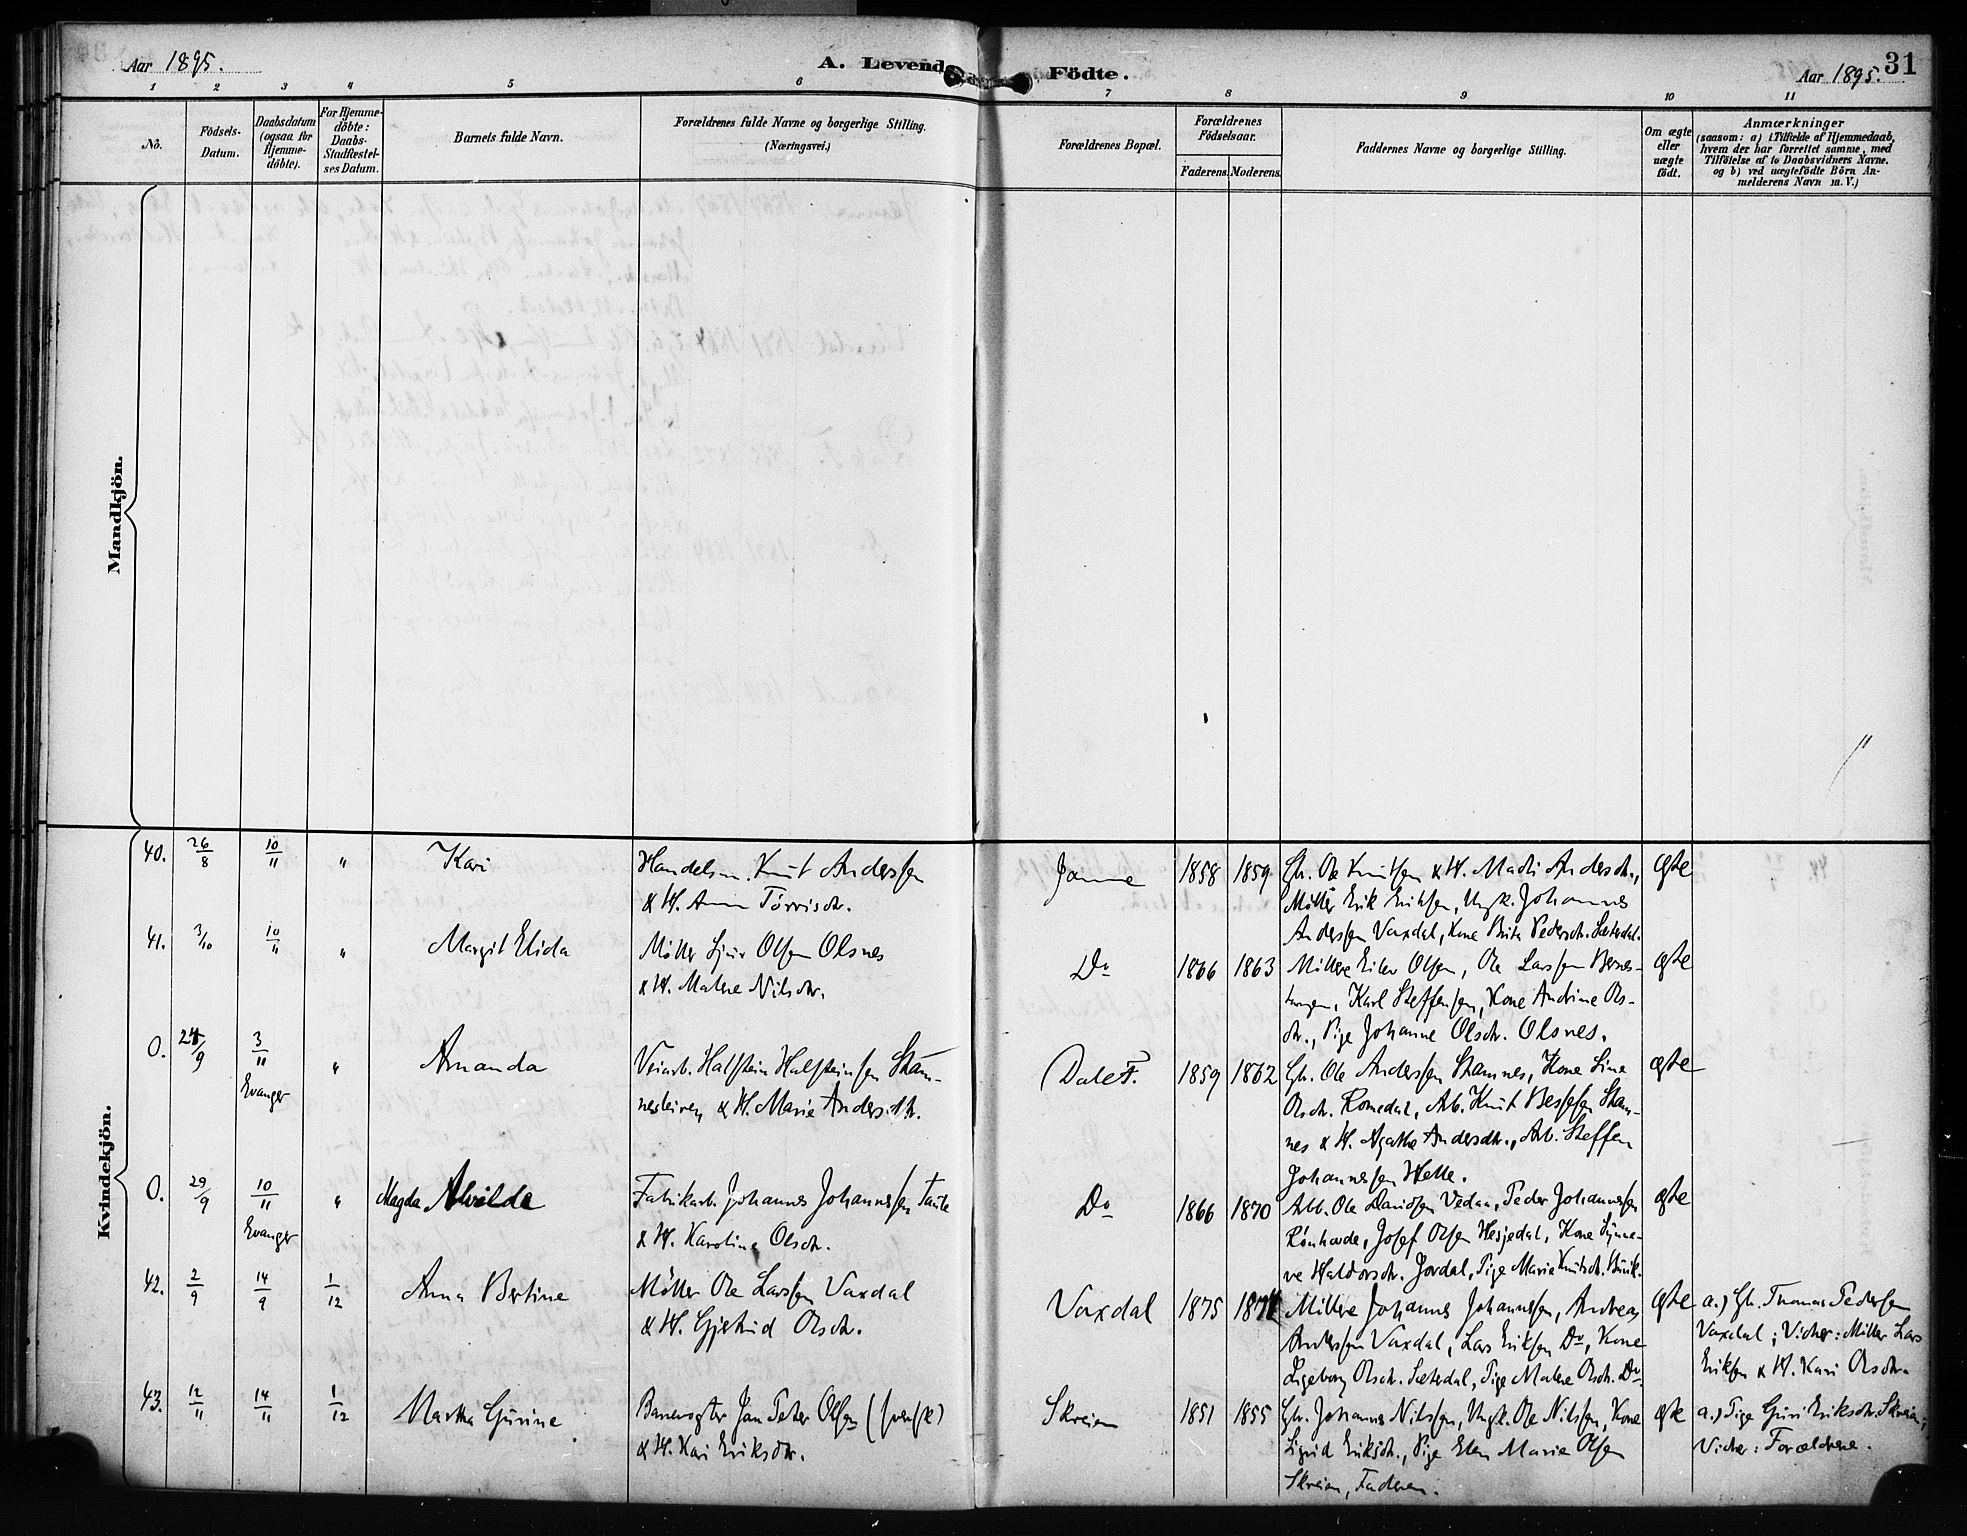 Aar 1895.
A. Levende Födte.
Aar 1895.
31
1 2 3 4 5 6 7 8 9 10 11
No.
Födsels-
Datum.
Daabsdatum
(ogsaa for
Hjemme-
döbte).
For Hjemme-
döbte:
Daabs-
Stadfæstel-
ses Datum.
Barnets fulde Navn.
Forældrenes fulde Navne og borgerlige Stilling.
(Næringsvei.)
Forældrenes Bopæl.
Forældrenes
Födselsaar.
Faderens. Moderens.
Faddernes Navne og borgerlige Stilling.
Om ægte
eller
uægte
födt.
Anmærkninger
(saasom: a) i Tilfælde af Hjemmedaab,
hvem der har forrettet samme, med
Tilföielse af to Daabsvidners Navne.
og b) ved uægtefödte Börn An-
melderens Navn m. V.)
Mandkjön.
Kvindekjön.
40. 26/8 10/11 "
Kari
Handelsm. Knut Anderssen
& H. Anna Törrisdtr.
Jamne
1858 1859
Gbr. Ole Knutsen & H. Madli Andersdtr.,
Möller Erik Eriksen, Ungk. Johannes
Anderssen Vaxdal, Kone Brita Pedersdtr. Sæterdal.
ægte
41. 3/10 10/11 "
Margit Elida
Möller Sjur Olsen Olsnes
& H. Malene Nilsdtr.
Do
1866 1863
Möllere Eiler Olsen, Ole Larssen Bernes-
tangen, Karl Steffensen, Kone Andrine Ols-
dtr., Pige Johanne Olsdtr. Olsnes.
ægte
0. 24/9 3/11 "
Evanger
Amanda
Veiarb. Halstein Halsteinsen Stam-
nesleiren, & H. Marie Andersdtr.
Dale F.
1859 1862
Gbr. Ole Anderssen Stamnes, Kone Sine
Olsdtr. Romedal, Arb. Knut Bessesen Stam-
nes & H. Agathe Andersdtr., Arb. Steffen
Johannessen Helle.
ægte
0. 29/9 10/11 "
Evanger
Magda Alvilde
Fabrikarb. Johannes Johannessen Taule
& H. Karoline Olsdtr.
Do
1866 1870
Arb. Ole Davidsen Vedaa, Peder Johannessen
Rönhovde, Josef Olsen Hesjedal, Kone Synne-
ve Haldorsdtr. Jordal, Pige Marie Knutsdtr. Brük.
ægte
42. 2/9 14/9 1/12
Anna Bertine
Möller Ole Larssen Vaxdal
& H. Gjertrud Olsdtr.
Vaxdal
1875 1874
Möllere Johannes Johannessen, Andreas
Anderssen Vaxdal, Lars Eriksen Do, Kone
Ingeborg Olsdtr. Sæterdal, Pige Malene Olsdtr. Do.
ægte
a.) Gbr. Thomas Pedersen
Vaxdal; Vidner: Möller Lars
Eriksen & H. Kari Olsdtr.
43. 12/11 14/11 1/12
Martha Gurine.
Banevogter Jan Peter Olsen (svensk)
& H. Kari Eriksdtr.
Skreien
1851 1855
Gbr. Johannes Nilssen, Ungk. Ole Nilssen, Kone
Sigrid Eriksdtr., Pige Elen Marie Olsen
Skreien, Faderen.
ægte
a.) Pige Guri Eriksdtr. Skreien;
Vidner: Forældrene.